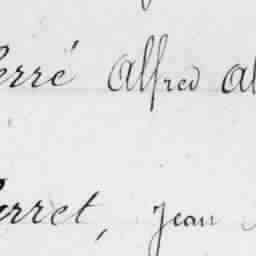 erré Alfred Al
rret, Jean